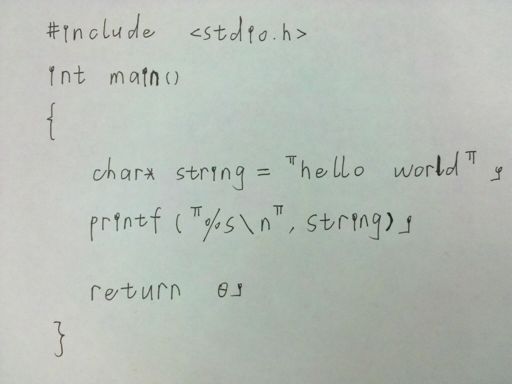 #include <stdio.h>
int main()
{
char* string = "hello world";
printf("%s\n", string);
return 0;
}